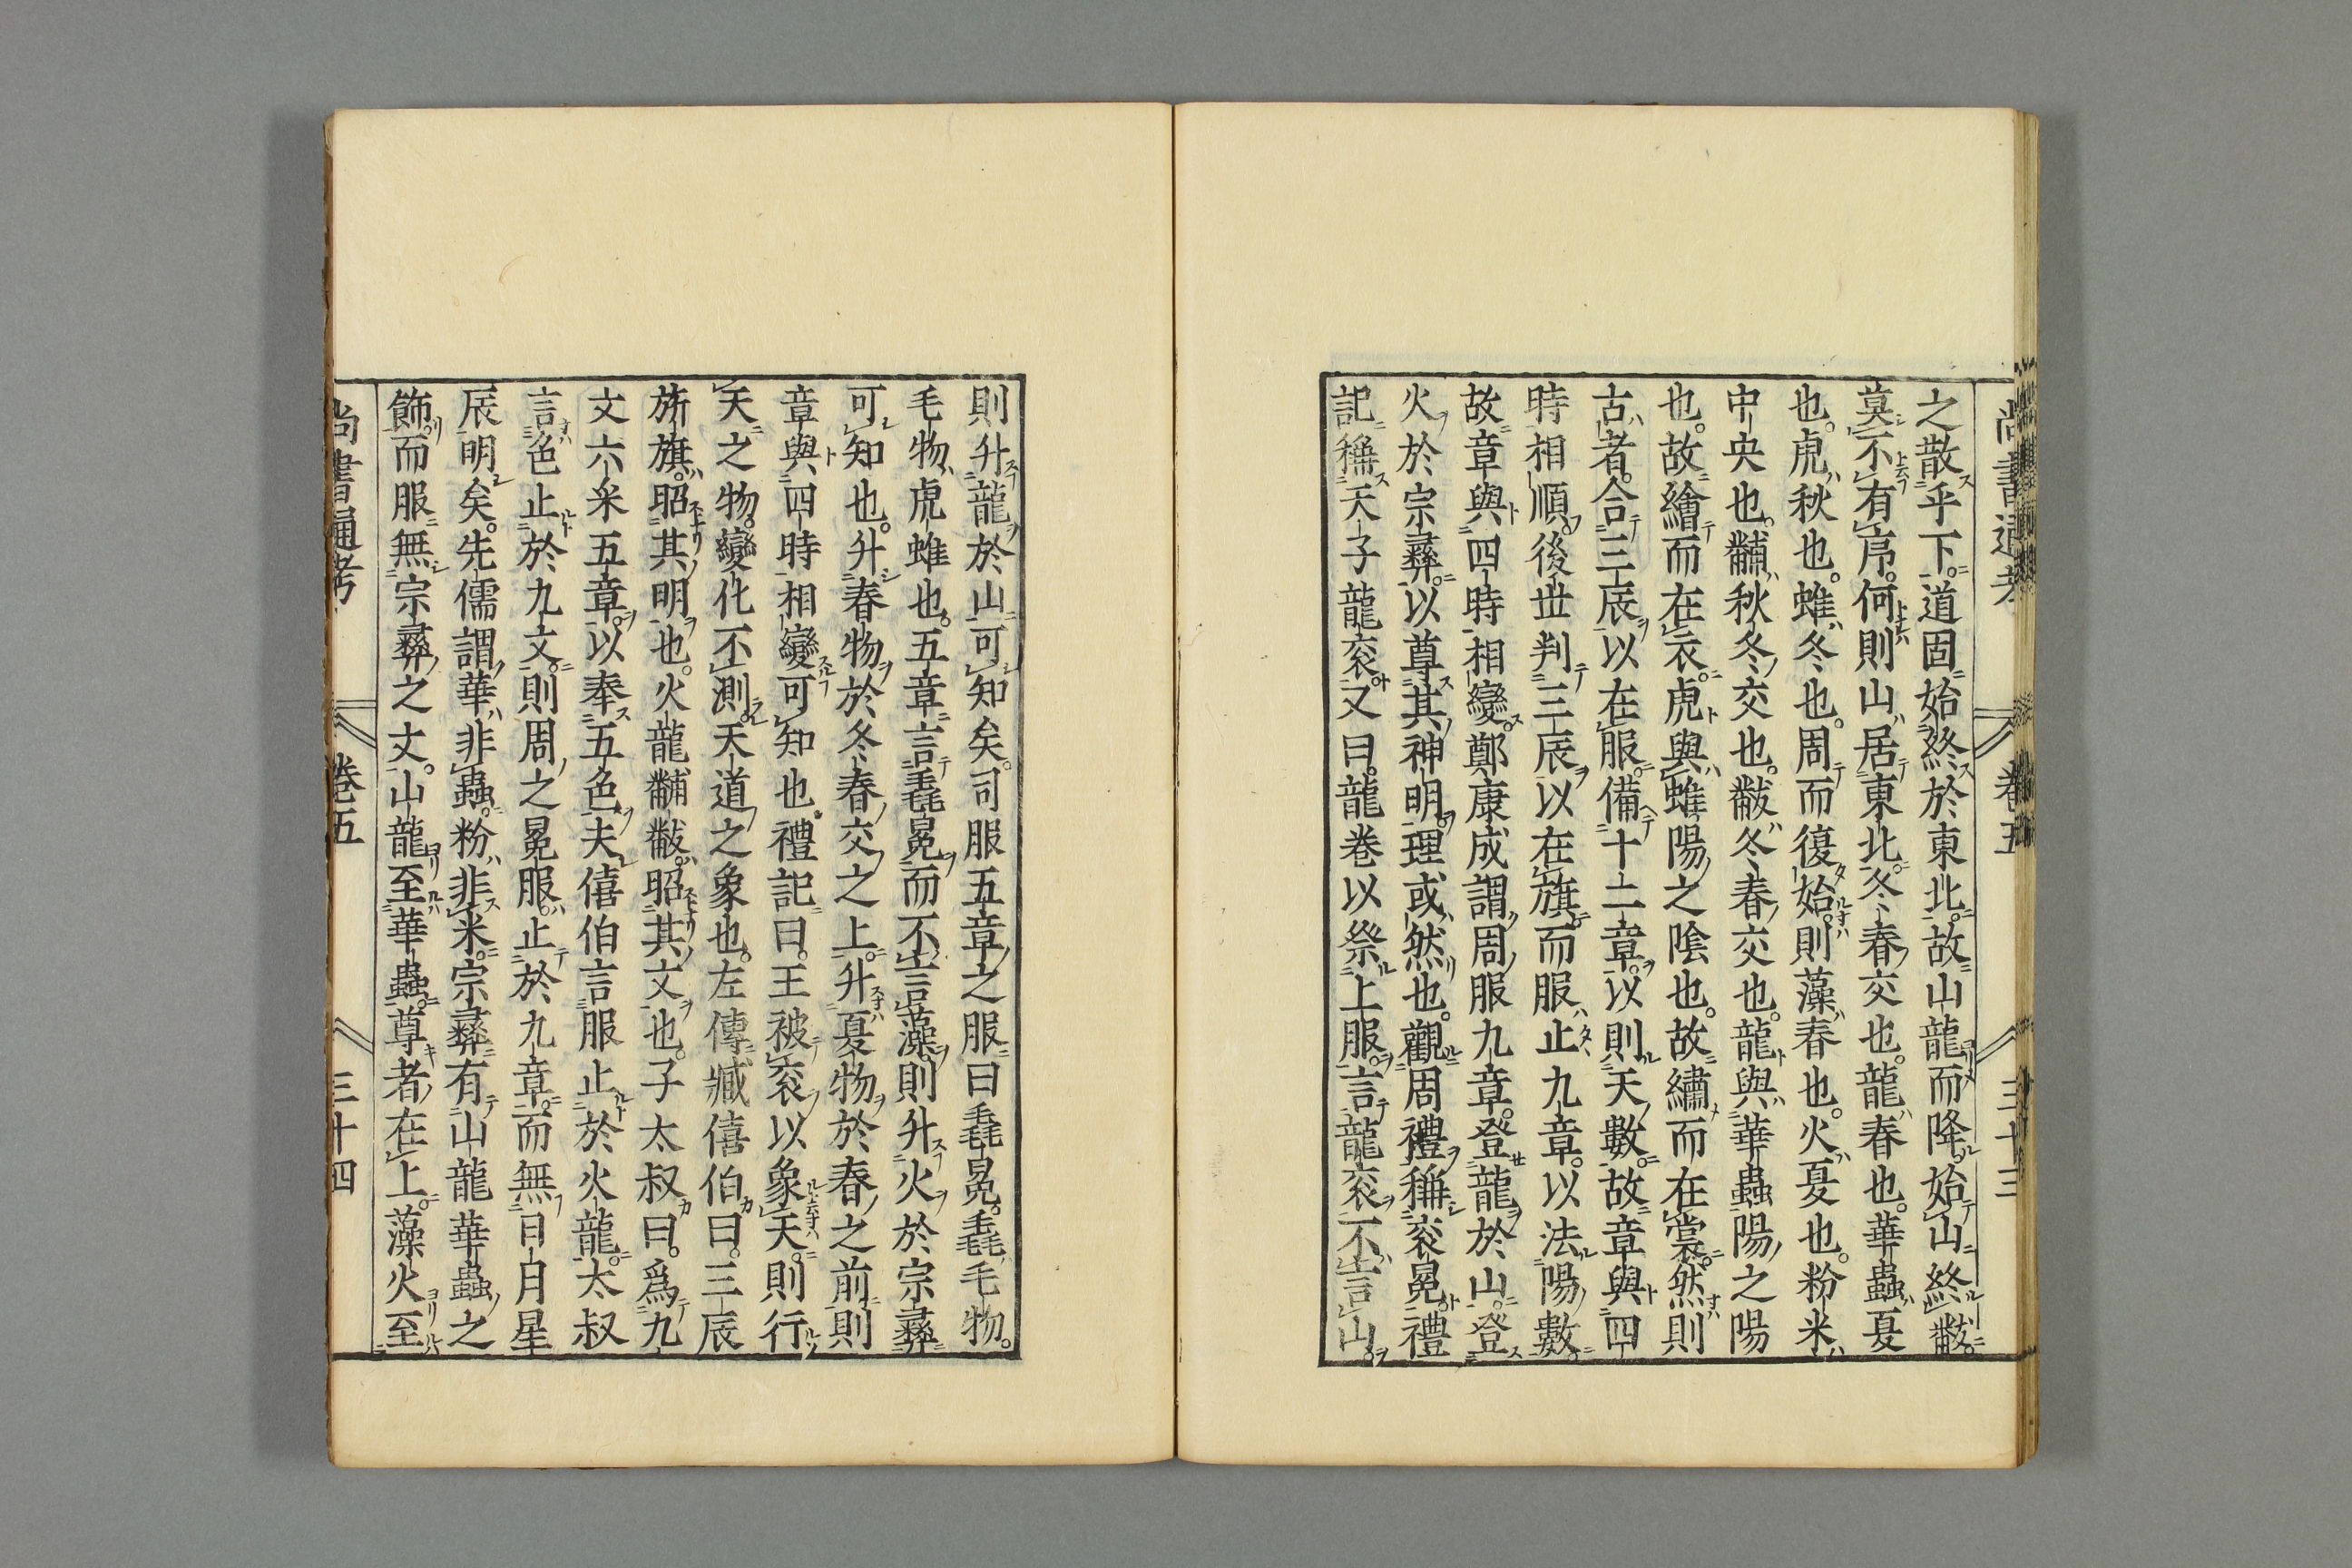 之散乎下道固始終於東北故山龍而降始山終黻
莫不有序何則山居東北冬春交也龍春也華蟲夏
也虎秋也蜼冬也周而復始則藻春也火夏也粉米
中央也黼秋冬交也黻冬春交也龍與華蟲陽之陽
也故繪而在衣虎與蜼陽之陰也故繡而在裳然則
古者合三辰以在服備十二章以則天數故章與四
時相順後世判三辰以在旗而服止九章以法陽數
故章與四時相變鄭康成謂周服九章登龍於山登
火於宗彞以尊其神明理或然也觀周禮稱袞冕禮
記稱天子龍袞又曰龍卷以祭上服言龍袞不言山
尚書通考 卷五 三十三
則升龍於山可知矣司服五章之服曰毳冕毳毛物
毛物虎蜼也五章言毳冕而不言藻則升火於宗彞
可知也升春物於冬春交之上升夏物於春之前則
章與四時相變可知也禮記曰王被袞以象天則行
天之物變化不測天道之象也左傳臧僖伯曰三辰
旂旗昭其明也火龍黼黻昭其文也子太叔曰爲九
文六采五章以奉五色夫僖伯言服止於火龍太叔
言色止於九文則周之冕服止於九章而無日月星
辰明矣先儒謂華非蟲粉非米宗彞有山龍華蟲之
飾而服無宗彞之文山龍至華蟲尊者在上藻火至
尚書通考 卷五 三十四